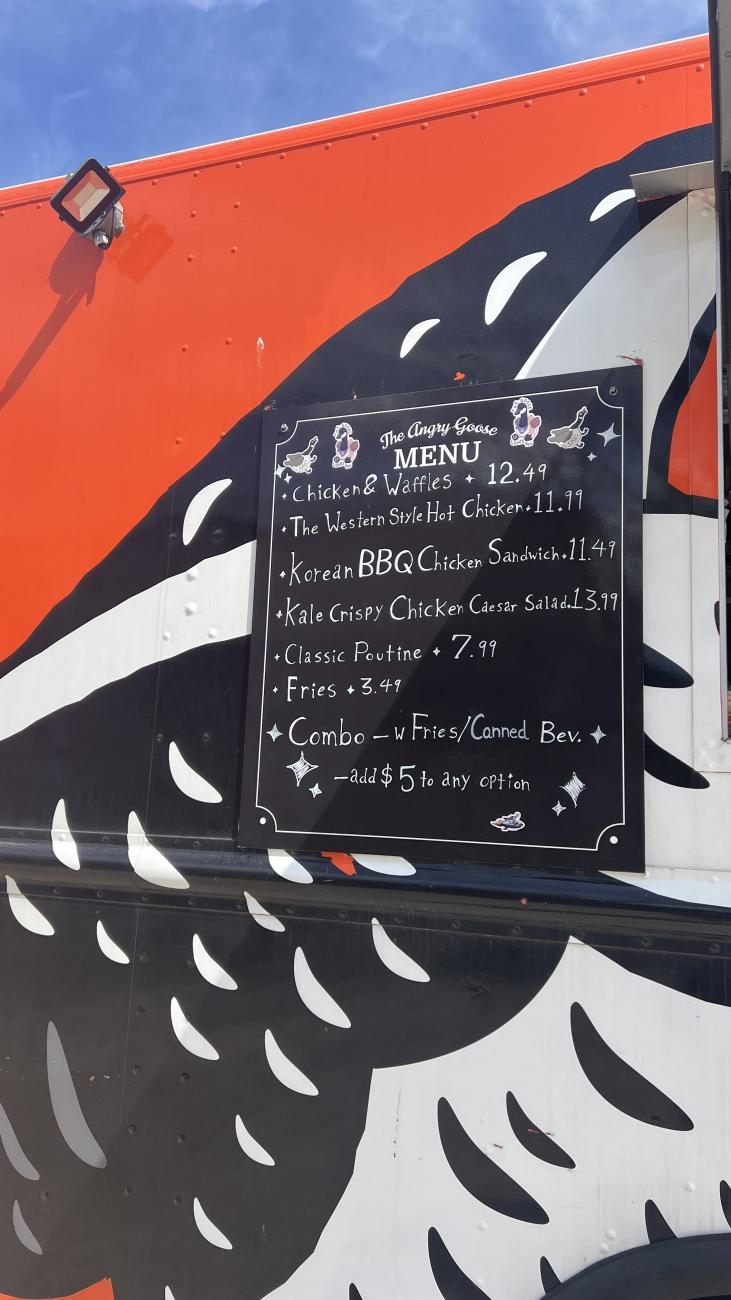 The Angry Goose
MENU
Chicken & Waffles 12.49
The Western Style Hot Chicken 11.99
Korean BBQ Chicken Sandwich 11.49
Kale Crispy Chicken Caesar Salad 13.99
Classic Poutine 7.99
Fries 3.49
Combo - w Fries/Canned Bev.
- add $5 to any option